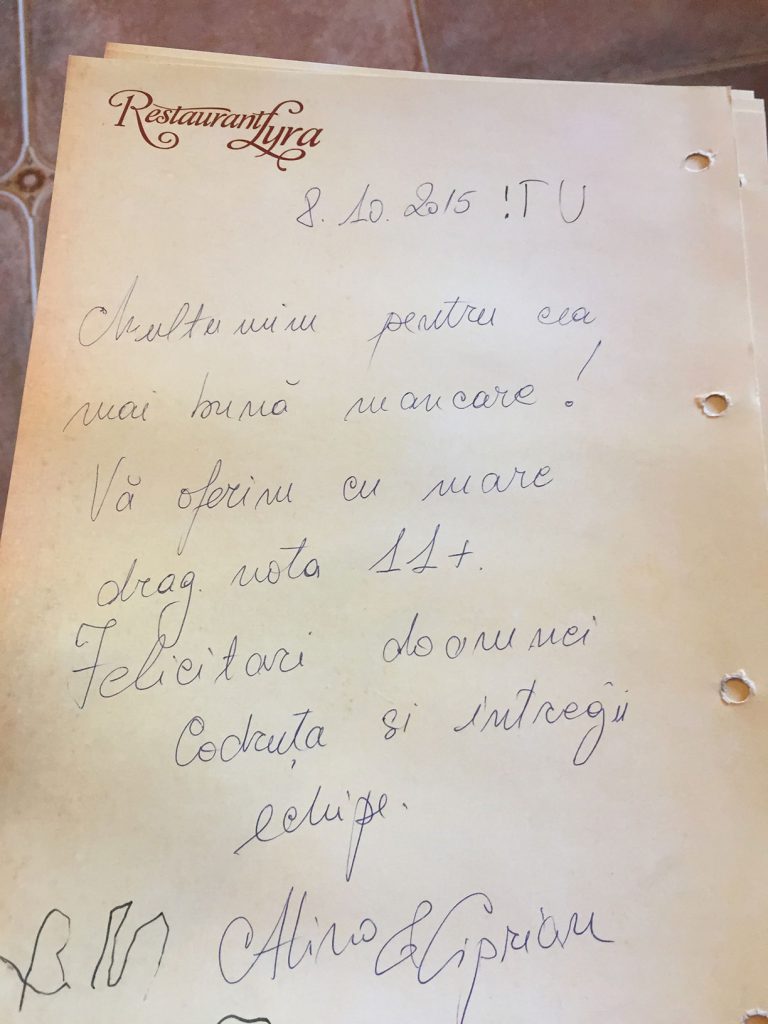 Restaurant Lyra
8.10.2015 !TU
Multumim pentru cea
mai bună mancare!
Vă oferim cu mare
drag nota 11+.
Felicitari doamnei
Codruța si intregii
echipe.
Alina & Ciprian